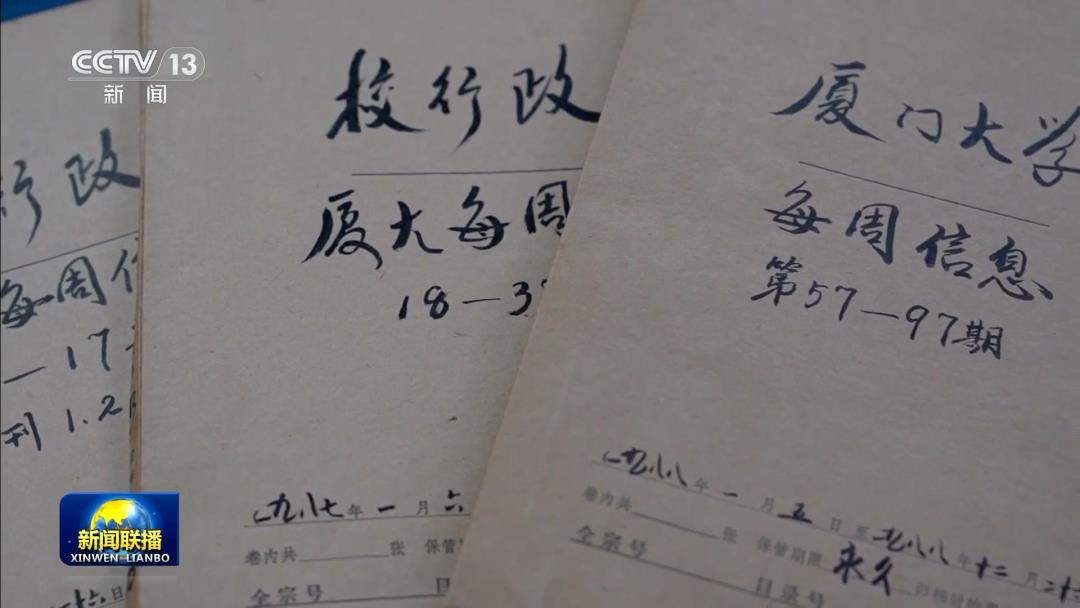 CCTV 13
新闻
行政
每周信
一17
刊1.2
十六日
校行政
厦大每周
18—3
一九八七年一月六
卷内共 张 保管
全宗号 目
厦门大学
每周信息
第57—97期
一九八八年一月五日至一九八八年十二月二十
卷内共 张 保管期限 永久
全宗号 目录号
新闻联播
XINWEN-LIANBO